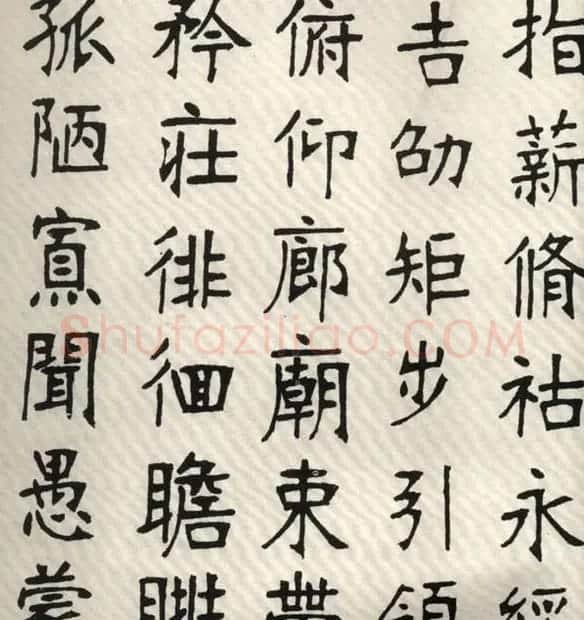 指薪脩祜永綏
吉劭矩步引領
俯仰廊廟束帶
矜莊徘徊瞻眺
孤陋寡聞愚蒙
Shufaziliao.COM